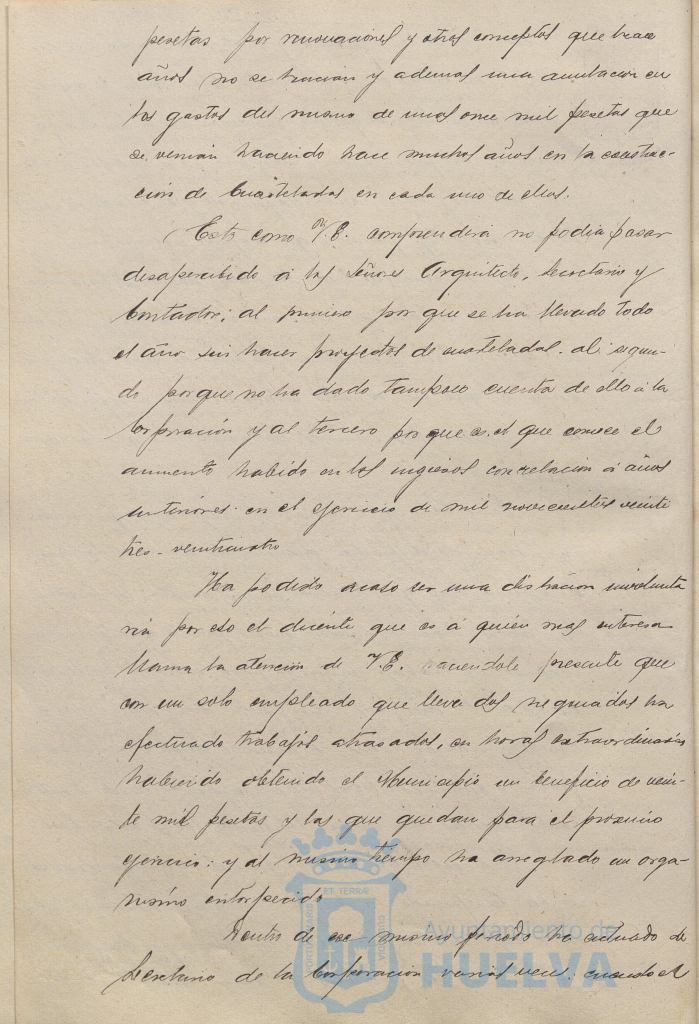 pesetas por renovaciones y otros conceptos que hace
años no se hacian y ademas una anulacion en
los gastos del mismo de unas once mil pesetas que
se venian haciendo hace muchos años en la construc-
ción de Cuarteladas en cada uno de ellos.
Esto como V.E. comprenderá no podia pasar
desapercibido á los Señores Arquitecto, Secretario y
Contador; al primero por que se ha llevado todo
el año sin hacer proyectos de cuarteladas. al segun-
do porque no ha dado tampoco cuenta de ello á la
Corporación y al tercero por que es el que conoce el
aumento habido en los ingresos con relacion á años
anteriores en el ejercicio de mil novecientos veinte
tres-veinticuatro
Ha podido acaso ser una distracion involunta
ria por eso el dicente que es á quien mas interesa
llama la atención de V.E. haciendole presente que
con un solo empleado que lleva dos negociados ha
efectuado trabajos atrasados, en horas extraordinarias
habiendo obtenido el Municipio un beneficio de vein-
te mil pesetas y las que quedan para el proximo
ejercicio: y al mismo tiempo ha arreglado un orga-
nismo entorpecido
Dentro de ese mismo periodo ha actuado de
Secretario de la Corporación varias veces. cuando el
Ayuntamiento de
HUELVA